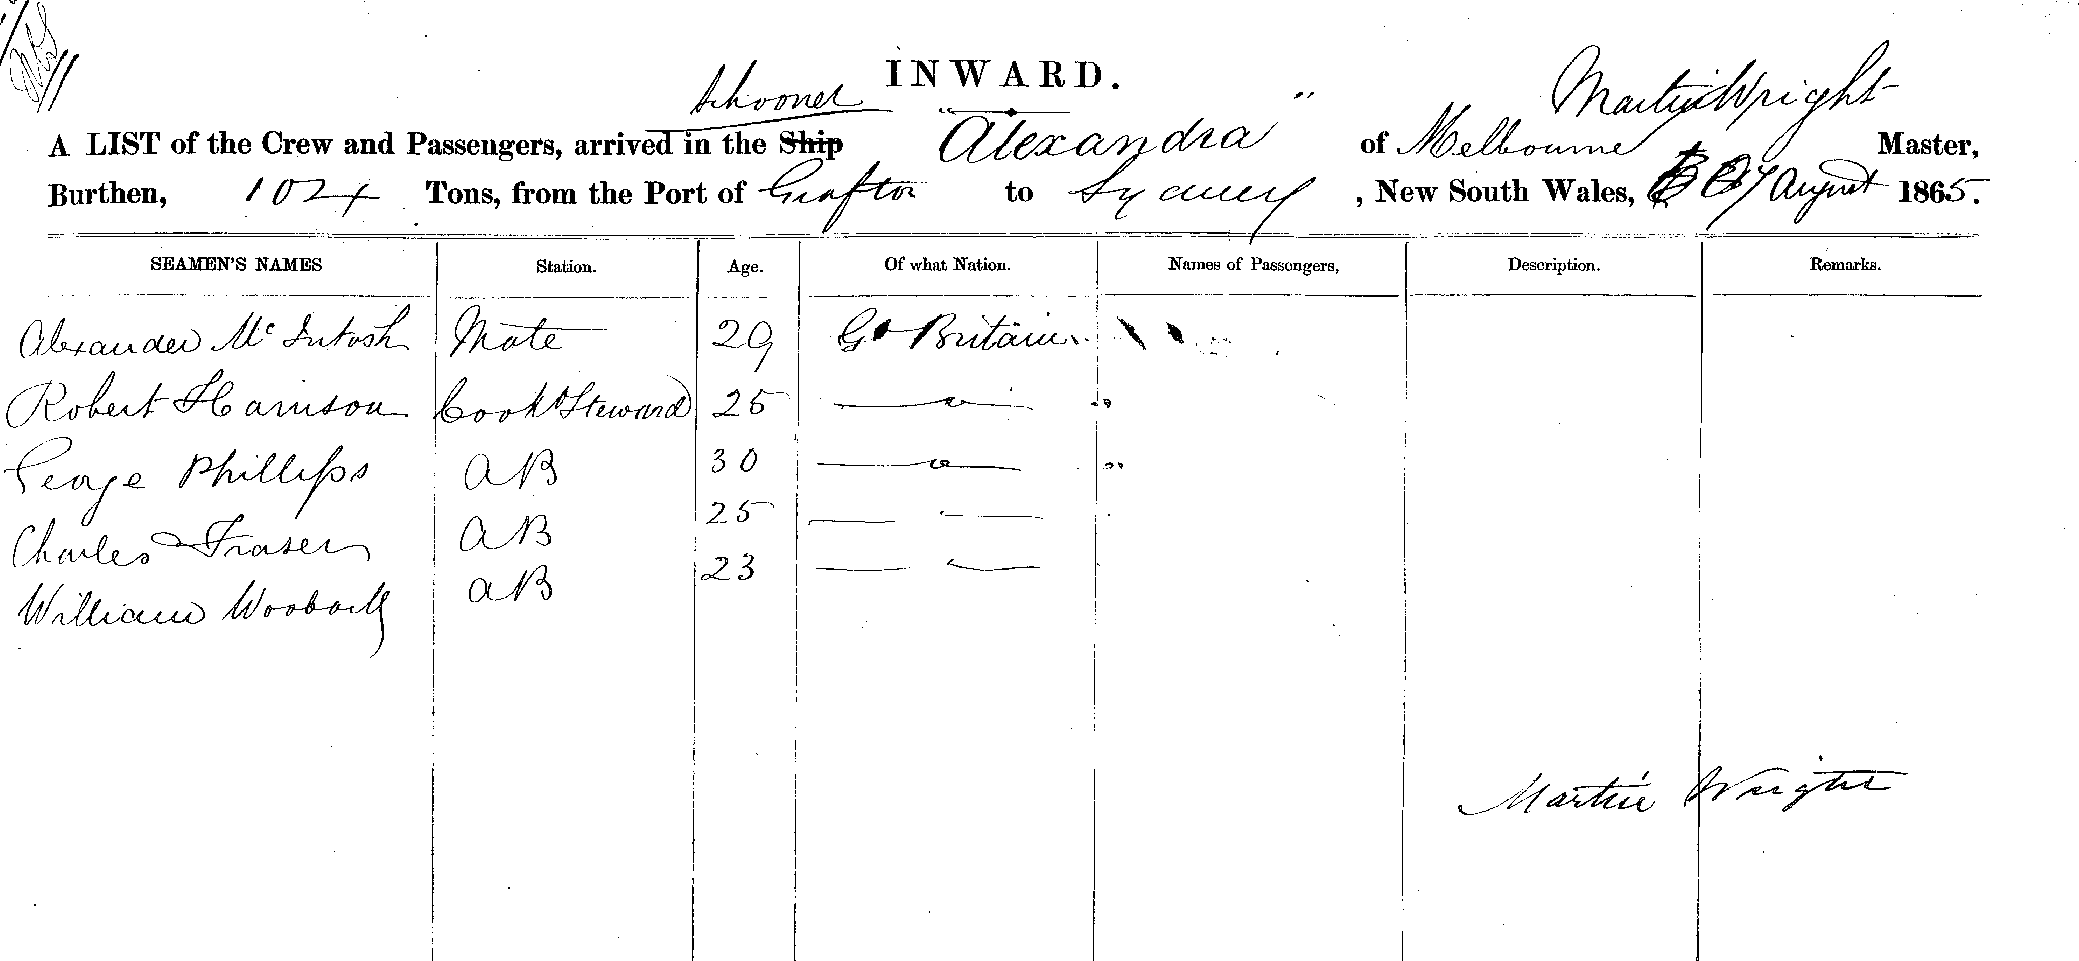 INWARD.
Schooner Martin Wright
A LIST of the Crew and Passengers, arrived in the Ship "Alexandra" of Melbourne Master,
Burthen, 102 Tons, from the Port of Grafton to Sydney, New South Wales, August 1865.
SEAMEN'S NAMES Station. Age. Of what Nation. Names of Passengers, Description. Remarks.
Alexander McIntosh Mate 29 Gt Britain
Robert Harrison Cook & Steward 25 — o — "
George Phillips AB 30 — o — "
Charles Fraser AB 25 — —
William AB 23 — —
Martin Wright